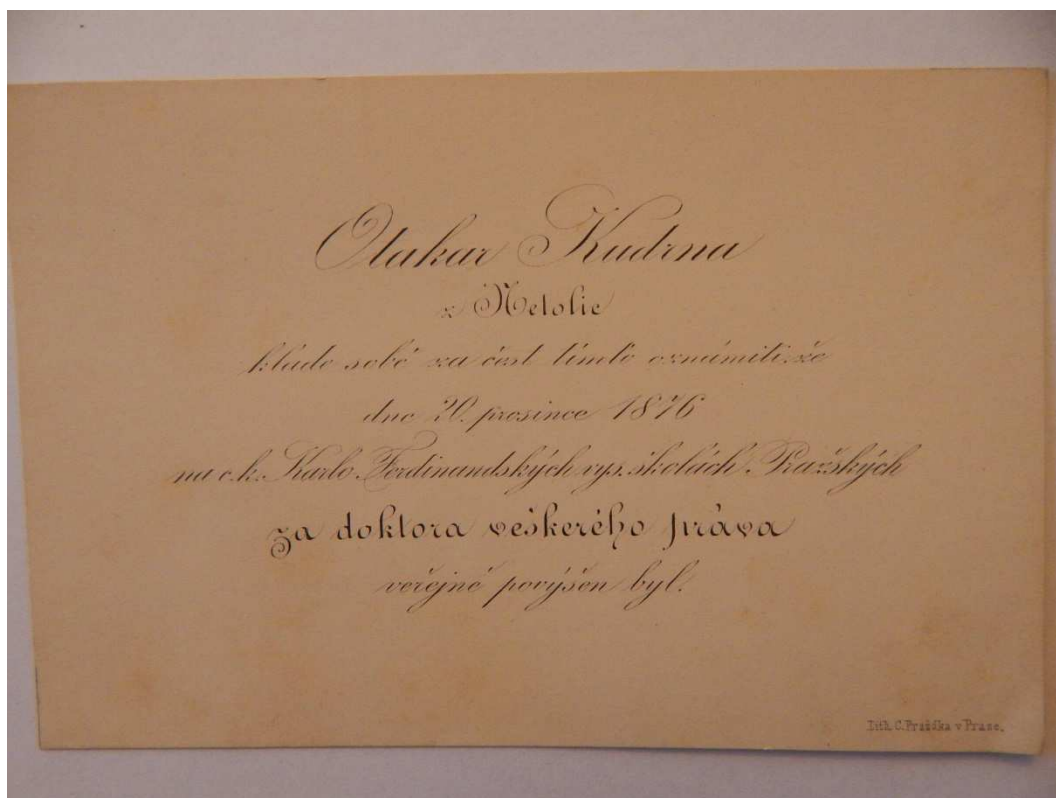 Otakar Kudrna
z Netolic
klade sobě za čest tímto oznámiti, že
dne 20. prosince 1876
na c. k. Karlo-Ferdinandských vys. školách Pražských
za doktora veškerého práva
veřejně povýšen byl.
Lith. C. v Praze.